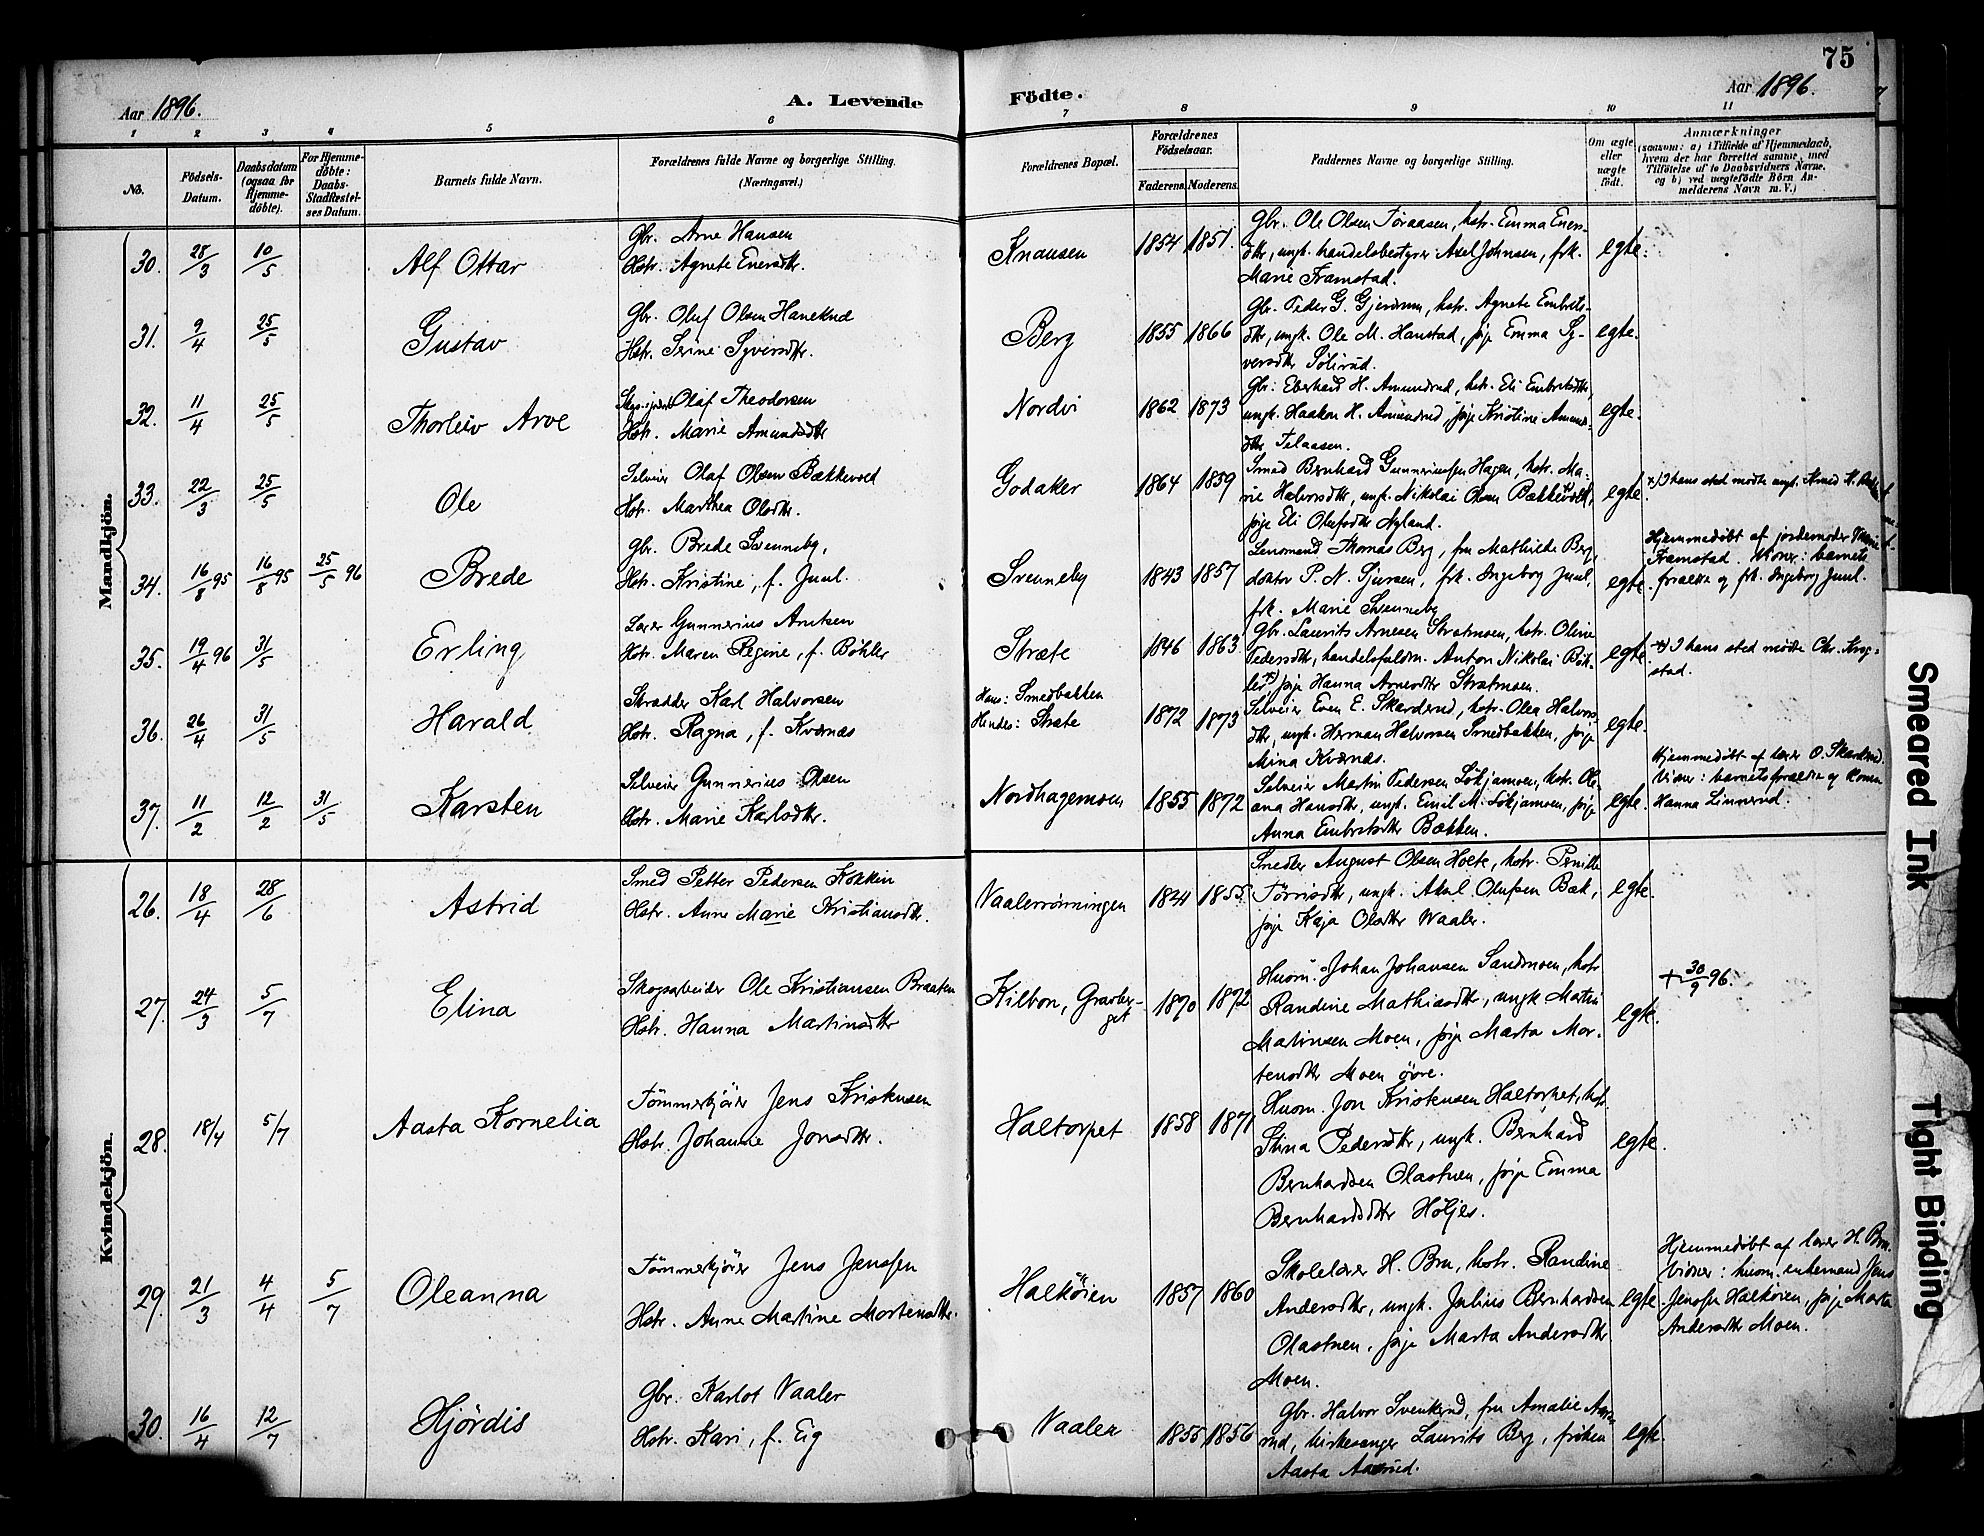 75
Aar 1896.
A. Levende
Födte.
Aar 1896.
1 2 3 4 5 6 7 8 9 10 11
No.
Födsels-
Datum.
Daabsdatum
(ogsaa for
Hjemme-
döbte).
For Hjemme-
döbte:
Daabs-
Stadfæstel-
ses Datum.
Barnets fulde Navn.
Forældrenes fulde Navne og borgerlige Stilling.
(Næringsvei.)
Forældrenes Bopæl.
Forældrenes
Födselsaar.
Faderens. Moderens.
Faddernes Navne og borgerlige Stilling.
Om ægte
eller
uægte
født.
Anmærkninger
(saasom: a) i Tilfælde af Hjemmedaab,
hvem der har forrettet samme, med
Tilföielse af to Daabsvidners Navne,
og b) ved uægtefödte Börn An-
melderens Navn m. V.)
Mandkjön.
30. 28/3 10/5 Alf Ottar
Gbr. Arne Hansen
Hstr. Agnete Enersdtr.
Knausen 1854 1851.
Gbr. Ole Olsen Toraasen, hstr. Emma Eners-
dtr, ungk. handelsbestyrer Axel Johnsen, frk.
Marie Framstad.
egte.
31. 9/4 25/5 Gustav
Gbr. Oluf Olsen Haneknd
Hstr. Serine Syversdtr.
Berg 1855 1866
Gbr. Peder G. Gjerdrum, hstr. Agnete Embrets-
dtr, ungk. Ole M. Haustad, pige Emma Sy-
versdtr Solirud.
egte.
32. 11/4 25/5 Thorleiv Arve
Olaf Theodorsen
Hstr. Marie Amundsdtr
Nordvi 1862 1873
Gbr. Eberhard H. Amundrud, hstr. Eli Embretsdtr,
ungk. Haakon H. Amundrud, pige Kristine Amunds-
dtr Telaasen.
egte.
33. 22/3 25/5 Ole
Selveier Olaf Olsen Bækkevold
Hstr. Marthea Olsdtr.
Godaker 1864 1859
Smed Bernhard Gunneriussen Hagen, hstr. Ma-
rie Halvorsdtr, ungk. Nikolai Olsen Bækkevold,
pige Eli Olufsdtr Nyland.
egte
x) I hans sted mødte ungk.
34. 16/8 95 16/8 95 25/5 96 Brede
Gbr. Brede Svenneby,
Hstr. Kristine, f. Juul.
Svenneby 1843 1857
Lensmand Thomas Berg, fru Mathilde Berg,
doktor P. N. Sjursen, frk. Ingeborg Juul,
frk. Marie Svenneby
egte.
Hjemmedøbt af jordemoder
Framstad. Vidner: barnets
forældre og frk. Ingeborg Juul.
35. 19/4 96 31/5 Erling
Lærer Gunnerius Arntsen
Hstr. Maren Regine, f. Bøhler
Stræte 1846 1863
Gbr. Laurits Arnesen Strætmoen, hstr. Oline
Pedersdtr, handelsfuldm. Anton Nikolai Bøh-
ler x), pige Hanna Arnesdtr Strætmoen.
egte.
x) I hans sted mødte Chr. Krog-
stad.
36. 26/4 31/5 Harald
Skrædder Karl Halvorsen
Hstr. Ragna, f. Kværnæs
Hans: Smedbakken
Hendes: Stræte
1872 1873
Selveier Even E. Skarderud, hstr. Olea Halvors-
dtr, ungk. Herman Halvorsen Smedbakken, pige
Mina Kværnæs.
egte.
37. 11/2 12/2 31/5 Karsten
Selveier Gunnerius Olsen
Hstr. Marie Karlsdtr.
Nordhagemoen 1855 1872
Selveier Martin Pedersen Løkjamoen, hstr. Ole-
ana Hansdtr, ungk. Emil M. Løkjamoen, pige
Anna Embretsdtr Bækken.
egte.
Hjemmedøbt af lærer O. Skarderud.
Vidner: barnets forældre og kone
Hanna Linnerud.
Kvindekjön.
26. 18/4 28/6 Astrid
Smed Petter Pedersen Køkkin
Hstr. Anne Marie Kristiansdtr.
Vaalerrøiningen 1841 1855
August Olsen Holte, hstr. Pernille
Tørrisdtr, ungk. Aksel Olufsen Bæk,
pige Kaja Olsdtr Vaaler.
egte.
27. 24/3 5/7 Elina
Skogsarbeider Ole Kristiansen Braaten
Hstr. Hanna Martinsdtr
Kilbon, Gravber-
get 1870 1872
Husm. Johan Johansen Sandmoen, hstr
Randine Mathiasdtr, ungk Martin
Martinsen Moen, pige Marta Mor-
tensdtr Moen øvre.
egte.
+ 30/9 96.
28. 18/4 5/7 Aasta Kornelia
Tømmerkjører Jens Kristensen
Hstr. Johanne Jonsdtr.
Haltorpet 1858 1871
Husm. Jon Kristensen Haltorpet, hstr.
Stina Pedersdtr, ungk. Bernhard
Bernhardsen Olastuen, pige Emma
Bernhardsdtr Høljes.
egte.
29. 21/3 4/4 5/7 Oleanna
Tømmerkjører Jens Jenssen
Hstr. Anne Martine Mortensdtr.
Halkøien 1857 1860
Skolelærer H. Bru, hstr. Randine
Andersdtr, ungk. Julius Bernhardsen
Olastuen, pige Marta Andersdtr
Moen.
egte.
Hjemmedøbt af lærer H. Bru.
Vidner: husm. enkemand Jens
Jenssen Halkøien, pige Marta
Andersdtr Moen.
30. 16/4 12/7 Hjördis
Gbr. Karlot Vaaler
Hstr. Kari, f. Eig
Vaaler 1855 1856
Gbr. Halvor Svenkerud, fru Amalie Aase-
rud, kirkesanger Laurits Berg, frøken
Aasta Aaserud.
egte.
Smeared Ink
Tight Binding